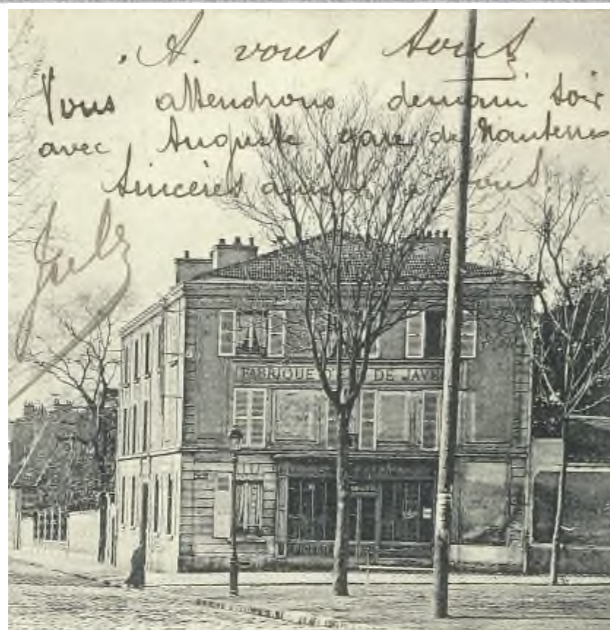 A vous tous
Vous attendrons demain soir
avec Auguste gare de Nanterre
Sincères à vous
Jules
FABRIQUE D' DE JAV